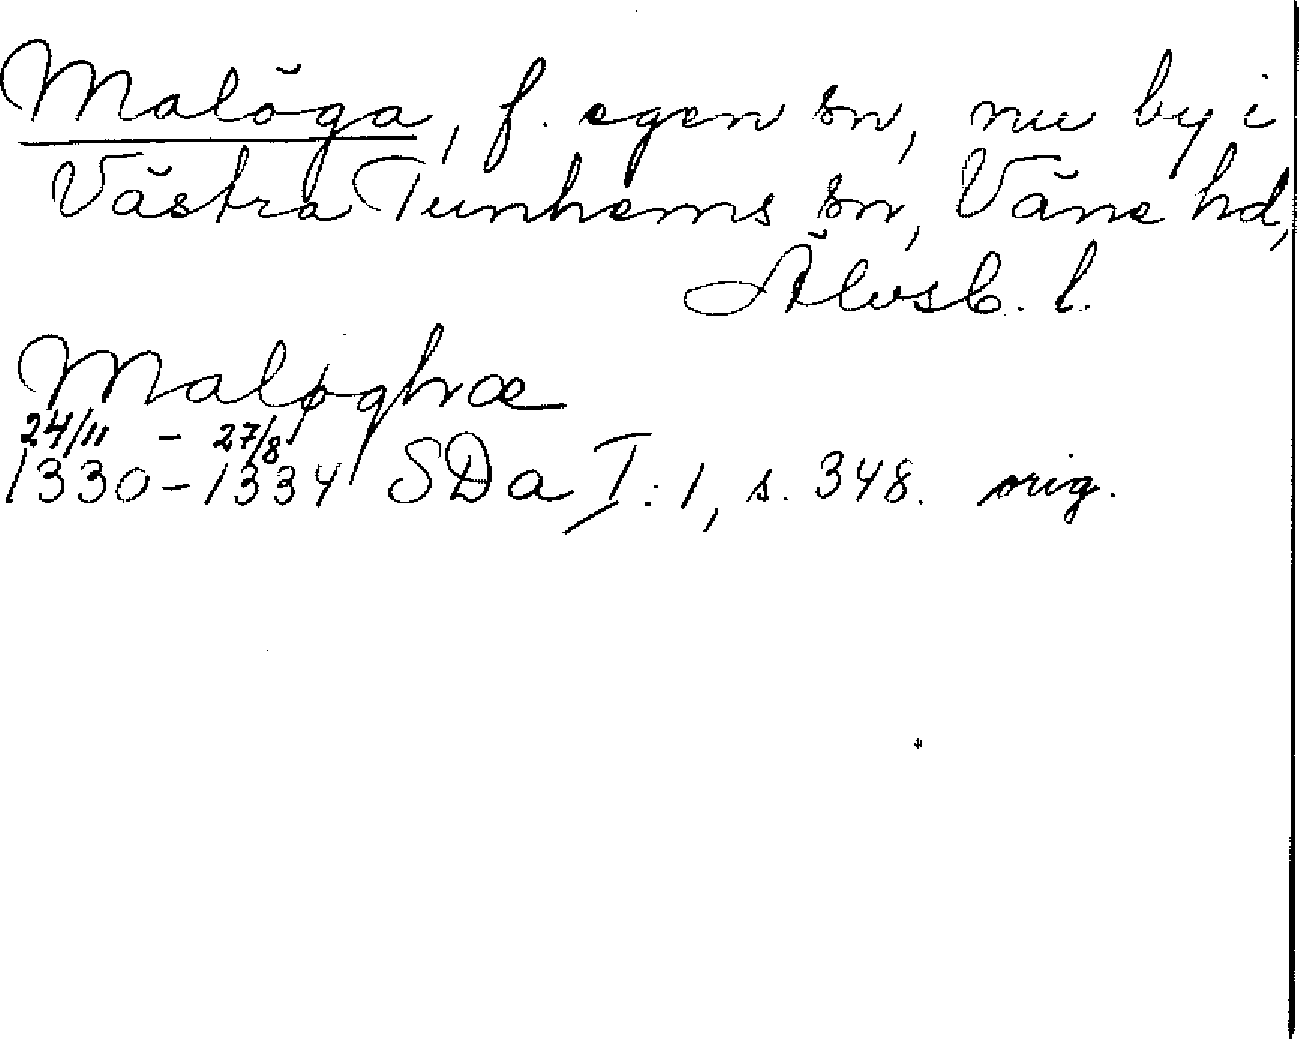 Malöga, f. egen sn, nu by i
Västra Tunhems sn, Väne hd,
Älvsb. l.
Maløghæ
24/11 – 27/8
1330–1334 SDa I:1, s. 348. orig.